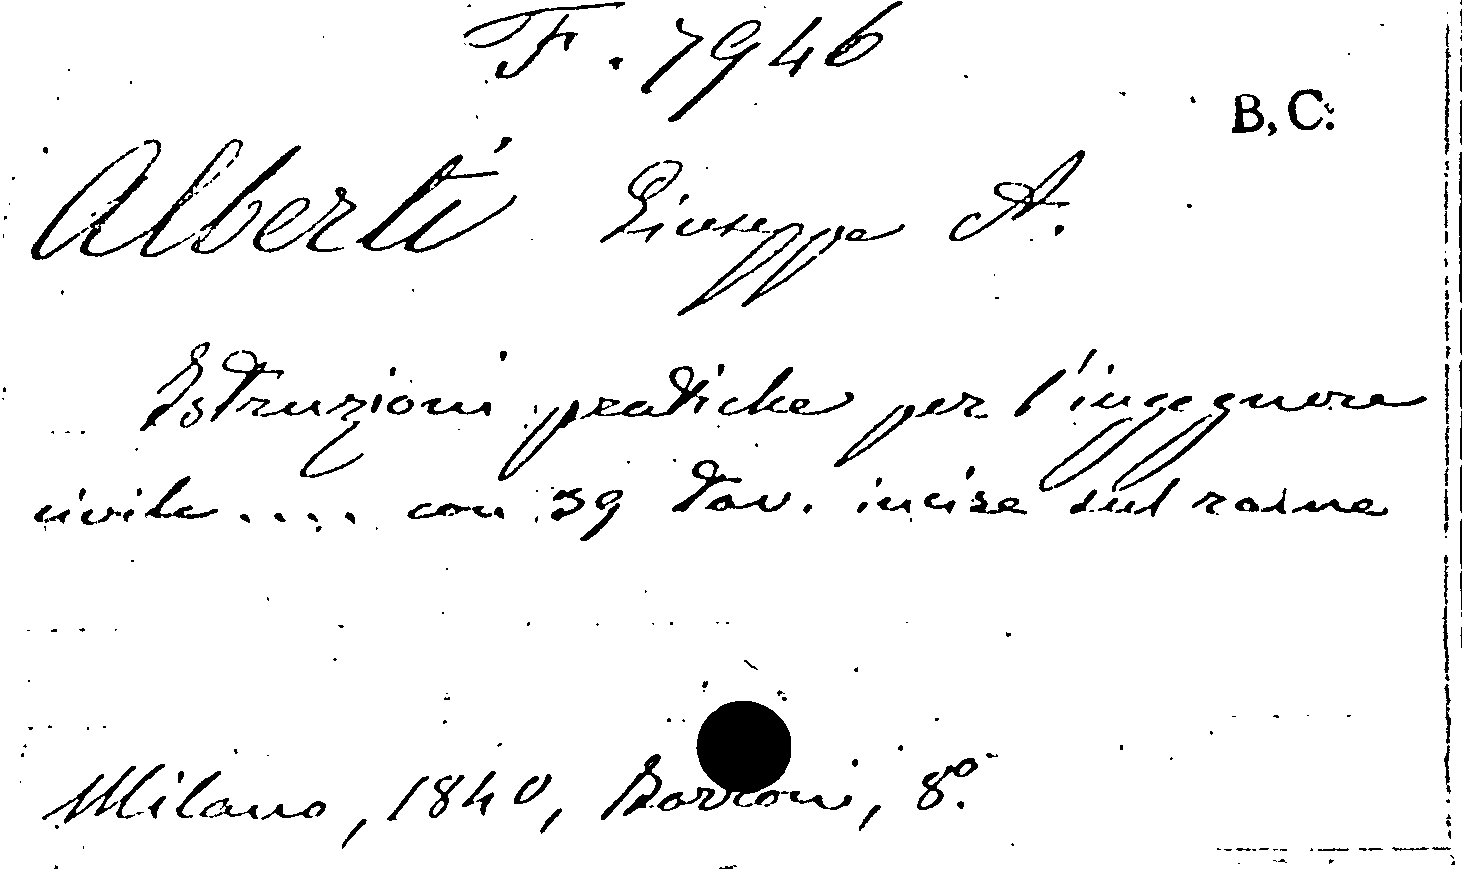 F. 7946
B. C.
Alberti Giuseppe A.
Istruzioni pratiche per l'ingegnere
civile .... con 39 tav. incise sul rame
Milano, 1840, Borroni, 8º.